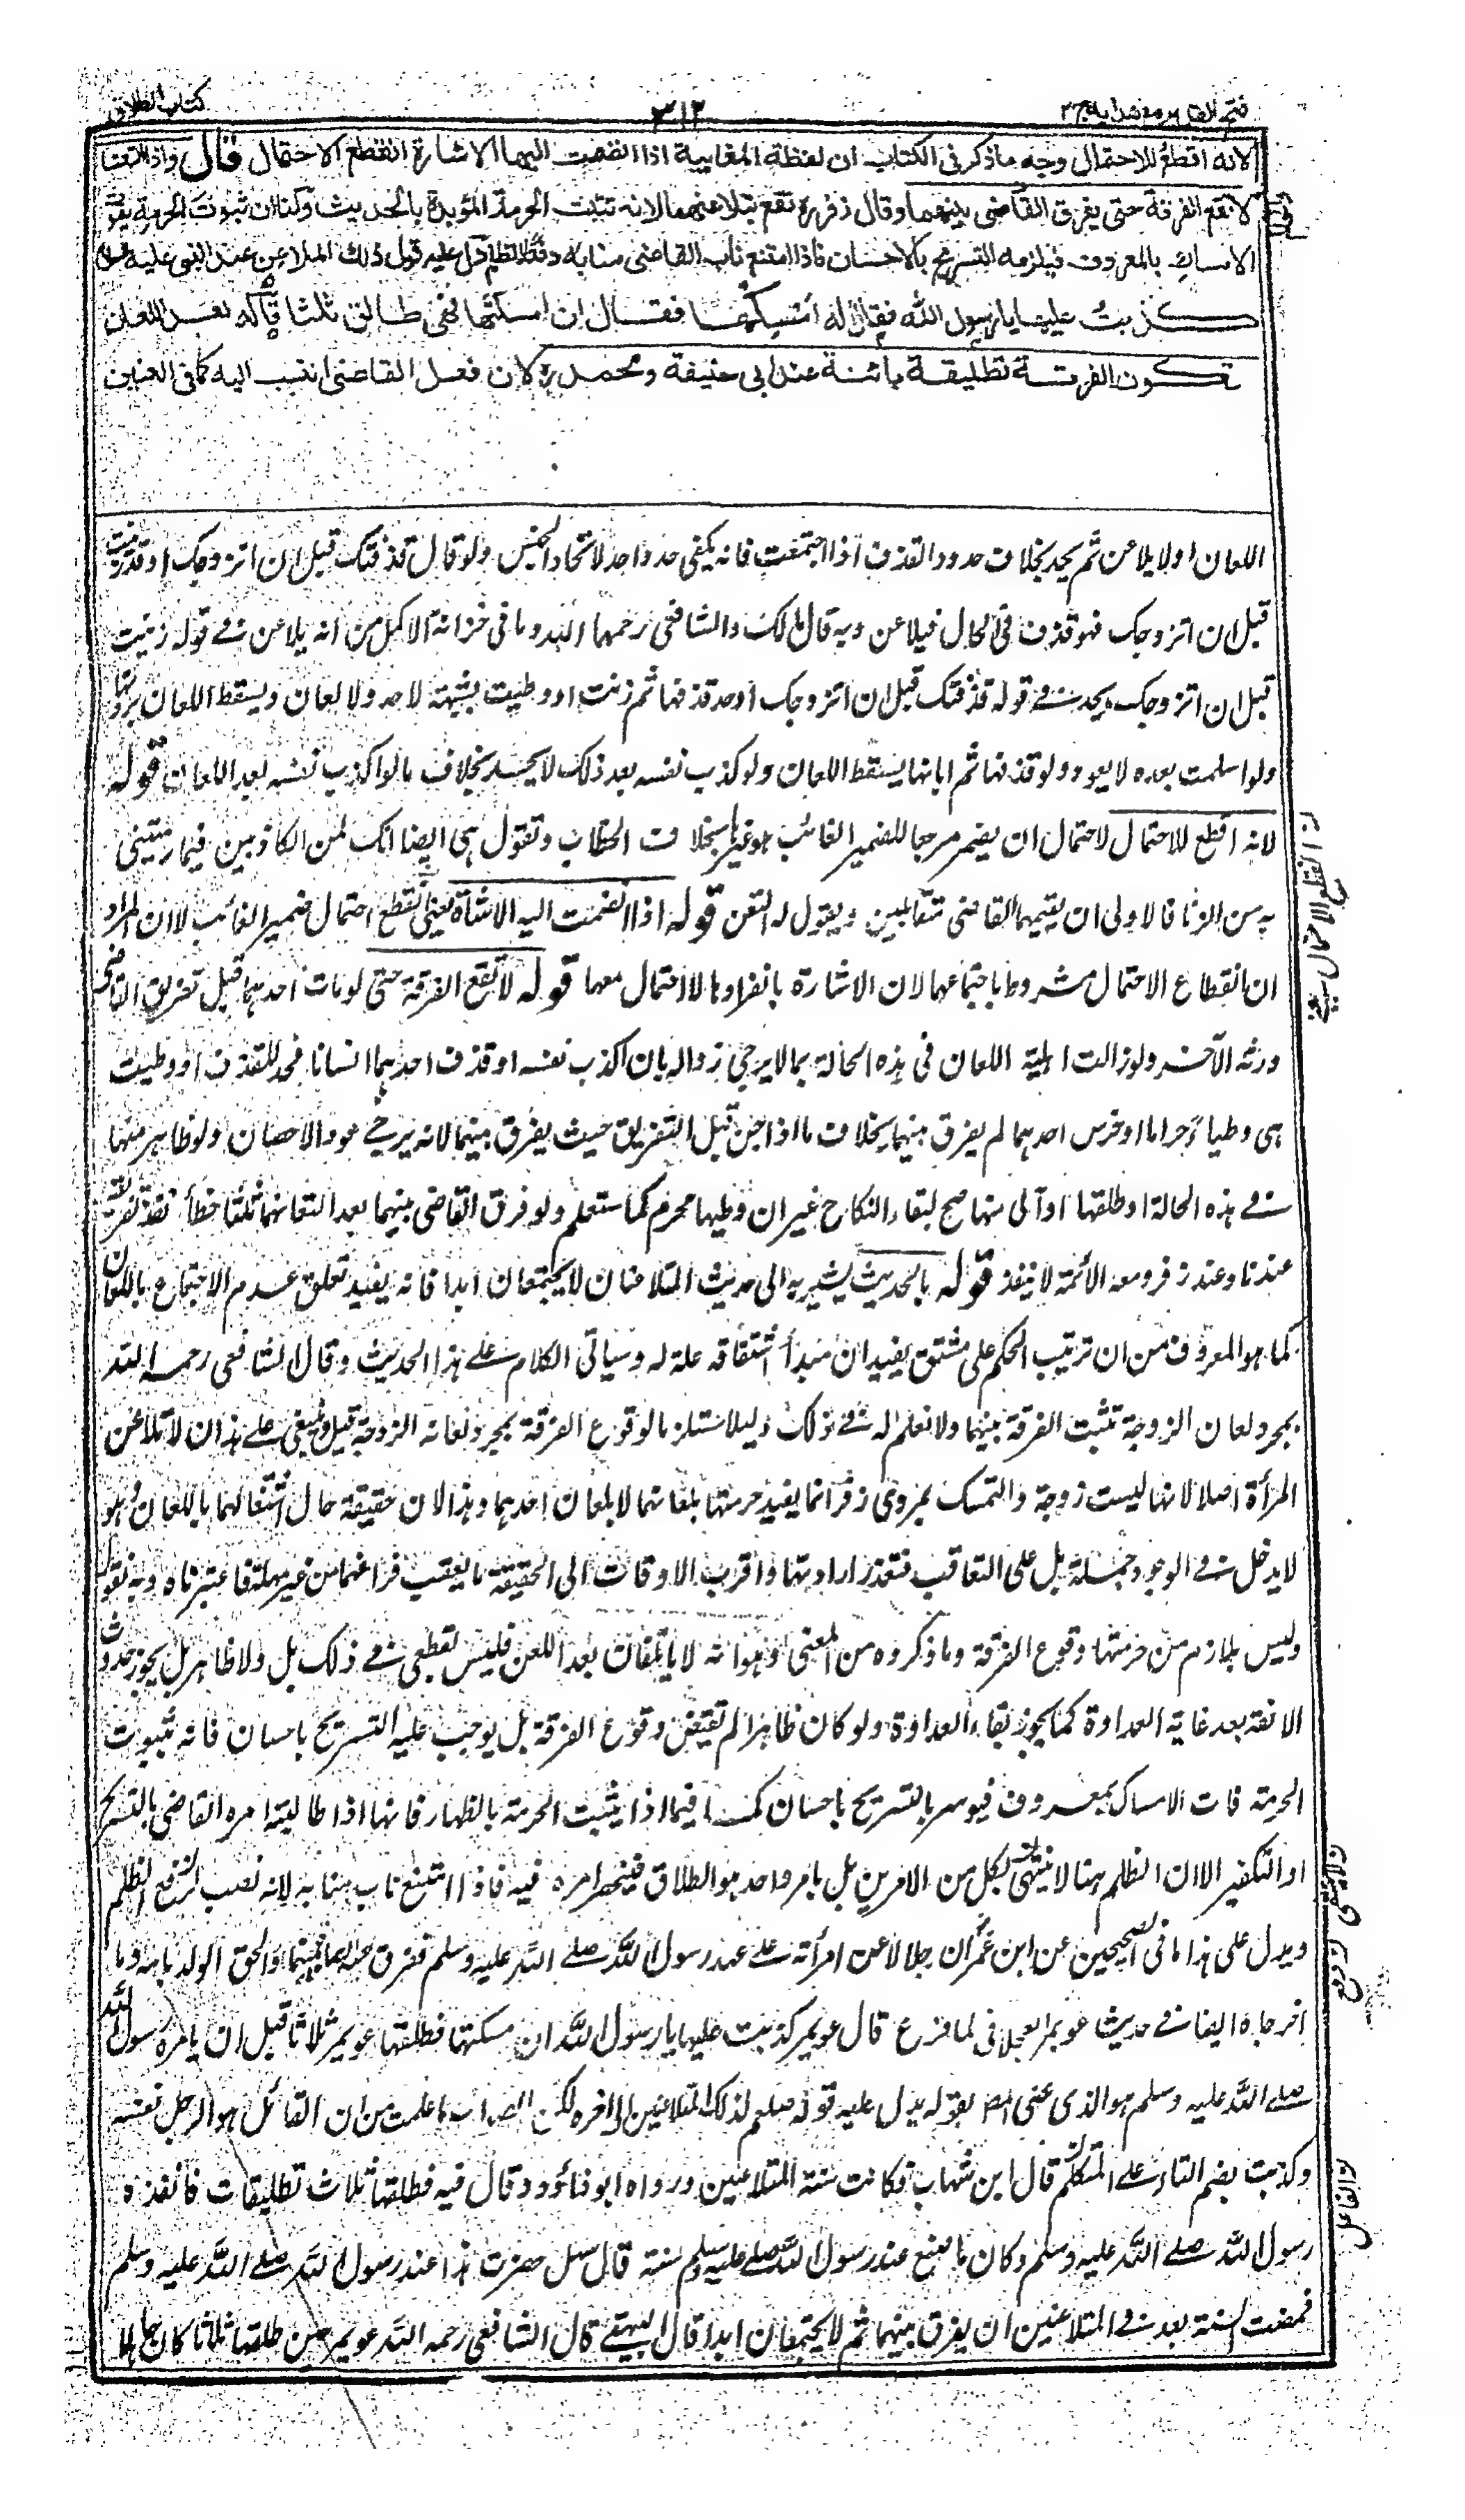 فتح القدير مع هدايه ج ٢
٣١٢
كتاب الطلاق
لانه اقطع للاحتمال وجه ما ذكر فى الكتاب ان لفظة المغايبة اذا انضمت اليها الاشارة انقطع الاحتمال قال واذا التعنا
لا تقع الفرقة حتى يفرق القاضى بينهما وقال زفر ره تقع بتلاعنهما لانه تثبت الحرمة المؤبدة بالحديث ولنا ان ثبوت الحرمة يفوت
الامساك بالمعروف فيلزمه التسريح بالاحسان فاذا امتنع ناب القاضى منابه دفعا للظلم دل عليه قول ذلك الملاعن عند النبى عليه السلام
كذبت عليها يا رسول الله فقال له امسكها فقال ان امسكتها فهى طالق ثلثا قاله بعد اللعان
تكون الفرقة تطليقة بائنة عند ابى حنيفة ومحمد ره لان فعل القاضى انتسب اليه كما فى العنين
اللعان اولا يلاعن ثم يحد بخلاف حدود القذف اذا اجتمعت فانه يكفى حد واحد لاتحاد الجنس ولو قال قذفتك قبل ان اتزوجك او قد زنيت
قبل ان اتزوجك فهو قذف فى الحال فيلاعن وبه قال مالك والشافعى رحمهما الله وما فى خزانة الاكمل من انه يلاعن فى قوله زنيت
قبل ان اتزوجك ويحد فى قوله قذفتك قبل ان اتزوجك اوحد قذفها ثم زنت او وطيت بشبهة لا حد ولا لعان ويسقط اللعان بردتها
ولو اسلمت بعده لا يعود ولو قذفها ثم ابانها يسقط اللعان ولو كذب نفسه بعد ذلك لا يحد بخلاف ما لو اكذب نفسه بعد اللعان قوله
لانه اقطع للاحتمال لاحتمال ان يضمر مرجعا للضمير الغائب هو غيرها بخلاف الخطاب وتقول هى ايضا انك لمن الكاذبين فيما رميتنى
به من الزنا فالاولى ان يقيمهما القاضى متقابلين ويقول له التعن قوله اذا انضمت اليه الاشارة يعنى انقطع احتمال ضمير الغائب لا ان المراد
ان انقطاع الاحتمال مشروط باجتماعهما لان الاشارة بانفرادها لا احتمال معها قوله لا تقع الفرقة حتى لو مات احدهما قبل تفريق القاضى
ورثه الآخر ولو زالت اهلية اللعان فى هذه الحالة بما لا يرجى زواله بان اكذب نفسه او قذف احدهما انسانا فحد للقذف او وطيت
هى وطيا حراما او خرس احدهما لم يفرق بينهما بخلاف ما اذا جن قبل التفريق حيث يفرق بينهما لانه يرجى عود الاحصان ولو ظاهر منها
فى هذه الحالة او طلقها او آلى منها صح لبقاء النكاح غير ان وطيها محرم كما ستعلم ولو فرق القاضى بينهما بعد التعانهما ثلثا خطأ نفذ تفريقه
عندنا وعند زفر ومعه الائمة لا ينفذ قوله بالحديث يشير به الى حديث المتلاعنان لا يجتمعان ابدا فانه يفيد تعلق عدم الاجتماع باللعان
كما هو المعروف من ان ترتيب الحكم على مشتق يفيد ان مبدأ اشتقاقه علة له وسياتى الكلام على هذا الحديث وقال الشافعى رحمه الله
بمجرد لعان الزوجة تثبت الفرقة بينهما ولا نعلم له فى ذلك دليلا مستلزما لوقوع الفرقة بمجرد لعانه الزوجة قيل وينبغى على هذا ان لا تلاعن
المرأة اصلا لانها ليست زوجة والتمسك بمروى زفر انما يفيد حرمتها بلعانهما لا بلعان احدهما وهذا لان حقيقة حال اشتغالهما باللعان وهو
لا يدخل فى الوجود جملة بل على التعاقب فتعذر ارادتها واقرب الاوقات الى الحقيقة ما يعقب فراغهما من غير مهلة فاعتبرناه وبه نقول
وليس بلازم من حرمتها وقوع الفرقة وما ذكروه من المعنى وهو انه لا يأتلفان بعد اللعن فليس بقطعى فى ذلك بل ولا ظاهر بل يجوز حدوث
الالفة بعد غاية العداوة كما يجوز بقاء العداوة ولو كان ظاهرا لم تقتض وقوع الفرقة بل يوجب عليه التسريح باحسان فانه بثبوت
الحرمة فات الامساك بمعروف فيؤمر بالتسريح باحسان كما فيما اذا يثبت الحرمة بالظهار فانها اذا طالبته امره القاضى بالتسريح
او التكفير الا ان الظلم هنا لا ينتهى بكل من الامرين بل بامر واحد هو الطلاق فينحصر امره فيه فاذا امتنع ناب منابه لانه نصب لرفع الظلم
ويدل على هذا ما فى الصحيحين عن ابن عمر ان رجلا لاعن امرأته على عهد رسول الله صلى الله عليه وسلم ففرق صلى الله عليه وسلم بينهما والحق الولد بامه وما
اخرجاه ايضا فى حديث عويمر العجلانى لما فرغ قال عويمر كذبت عليها يا رسول الله ان امسكتها فطلقها عويمر ثلاثا قبل ان يامره رسول الله
صلى الله عليه وسلم هو الذى عنى المص بقوله يدل عليه قوله صلعم لذلك المتلاعنين الى آخره لكن الصواب ما علمت من ان القائل هو الرجل نفسه
وكذبت بضم التاء على المتكلم قال ابن شهاب فكانت سنة المتلاعنين ورواه ابو داؤد وقال فيه فطلقها ثلاث تطليقات فانفذه
رسول الله صلى الله عليه وسلم وكان ما صنع عند رسول الله صلى الله عليه وسلم سنة قال سهل حضرت هذا عند رسول الله صلى الله عليه وسلم
فمضت السنة بعد فى المتلاعنين ان يفرق بينهما ثم لا يجتمعان ابدا قال البيهقى قال الشافعى رحمه الله عويمر حين طلقها ثلاثا كان جاهلا